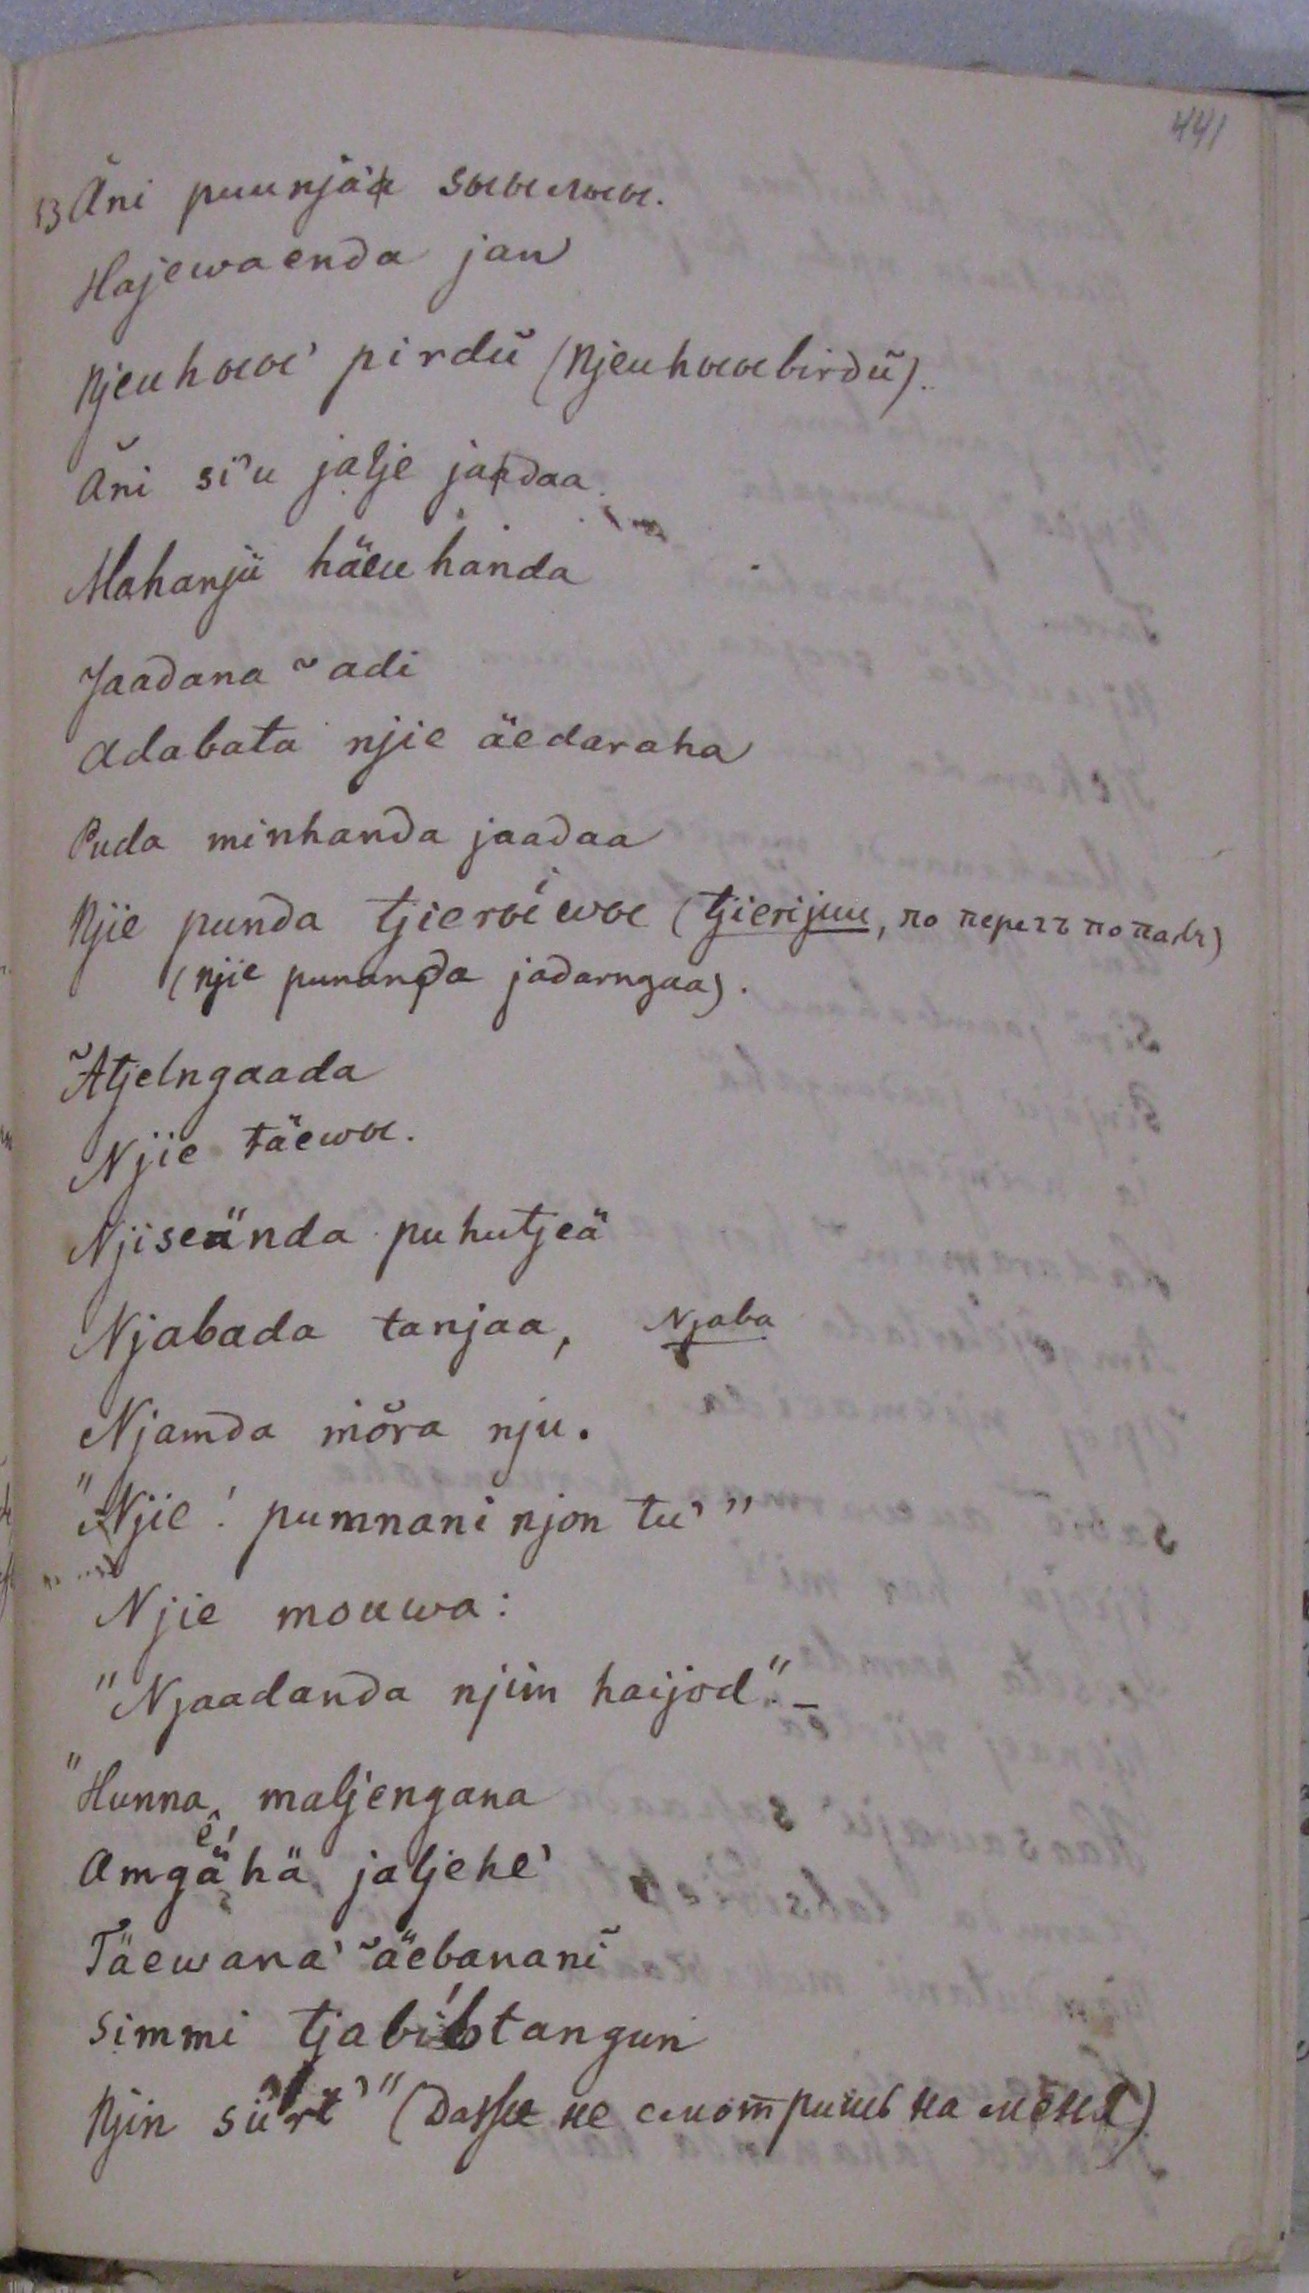 441
13 Äni puunjää sœœлœœ.
Hajewaenda jaŭ
Njeuhœœ' pirdŭ (Njeuhœœbirdŭ).
Äni si'u jalje jandaa.
Mahanjü häeuhanda
Jaadana ˘adi
Adabata njie äedaraha
Puda minhanda jaadaa
Njie punda tjierœíwœ (tjierijuu, по
(njie punanda jadarngaa).
˘Atjelngaada
Njie täewœ.
Njiseända puhutjeä
Njabada tanjaa, Njaba
Njamda mŏra nju.
"Njie! pumnani njon tu'"
Njie mouwa:
"Njaadanda njim haijod". –
"Hunna maljengana
Amgähä jaljehe'
Täewana' ˘äebananĭ
Simmi tjabíbtangun
Njin sürt'" (даже не смотришь на меня)